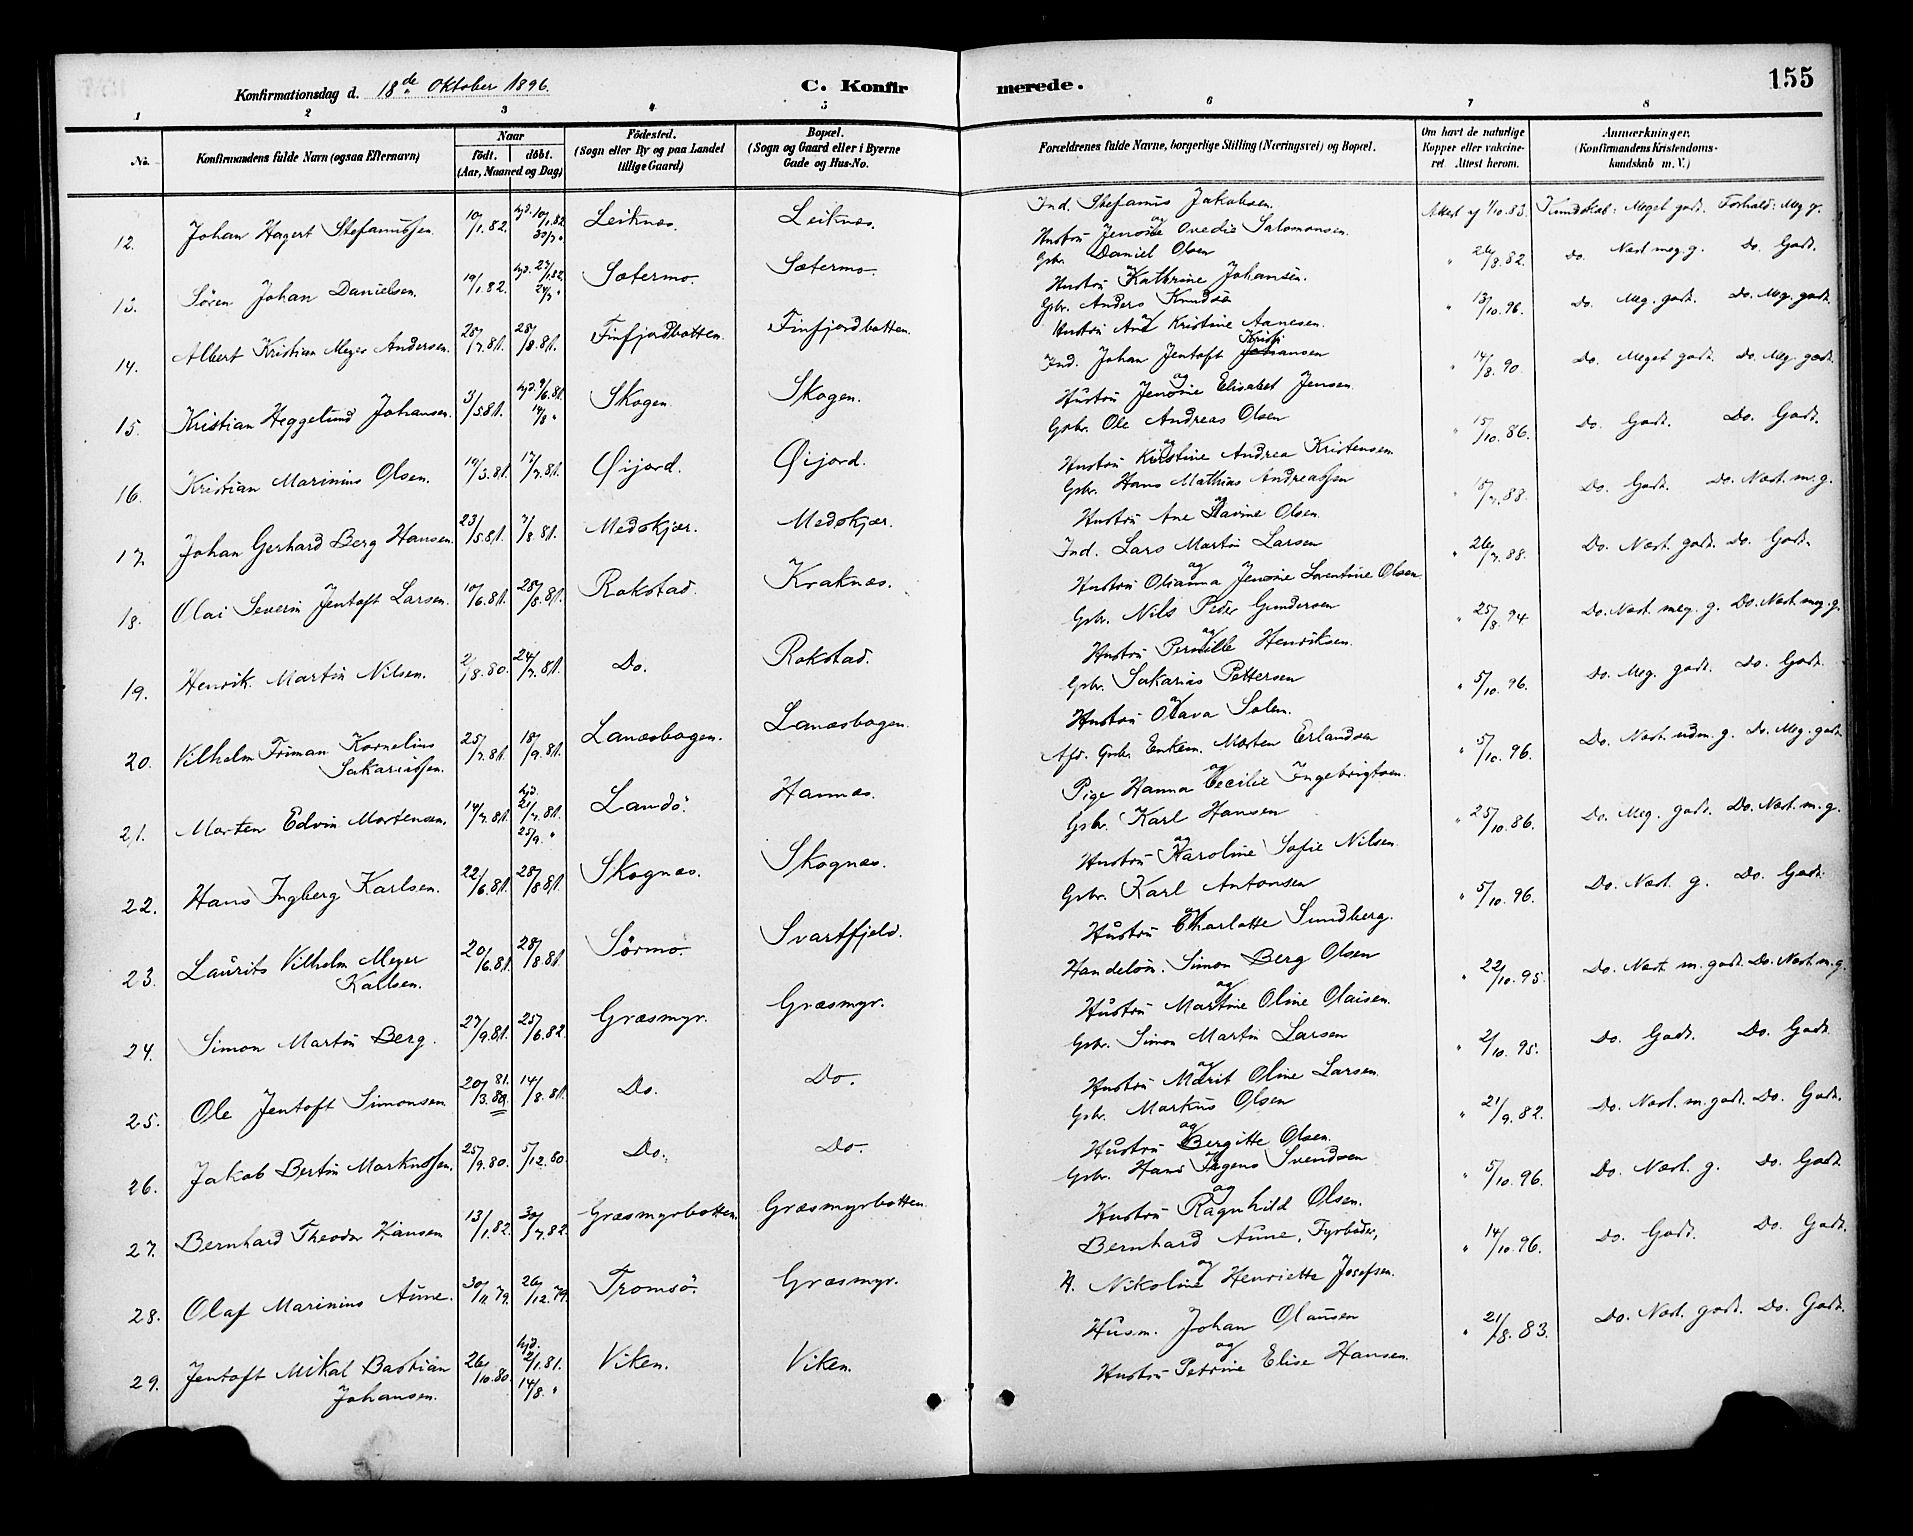 Konfirmationsdag d. 18de Oktober 1896.
C. Konfirmerede.
155
1 2 3 4 5 6 7 8
No. Konfirmandens fulde Navn (ogsaa Efternavn) Naar födt. döbt. (Aar, Maaned og Dag) Födested. (Sogn eller By og paa Landet tillige Gaard) Bopæl. (Sogn og Gaard eller i Byerne Gade og Hus-No. Forældrenes fulde Navne, borgerlige Stilling (Næringsvei) og Bopæl. Om havt de naturlige Kopper eller vakcineret Attest herom. Anmærkninger. (Konfirmandens Kristendomskundskab m. V.)
12. Johan Hagert Stefanussen. 10/1.82. hjd. 10/1.82. 30/7 " Leiknes. Leiknes. Ind. Stefanus Jakobsen og Hustru Jensine Ovedie Salomonsen. Attest af 1/10.83. Kundskab: Meget godt. Forhold: Meg. g.
13. Sören Johan Danielsen. 19/1.82. hjd. 27/1.82. 24/7 " Sætermo. Sætermo. Gbr. Daniel Olsen og Hustru Kathrine Johansen. " 26/8.82. Do. Næst meg. g. Do. Godt.
14. Albert Kristian Meyer Andersen. 25/7.81. 28/8.81. Finfjordbotten. Finfjordbotten. Gbr. Anders Knudsen og Hustru Ane Kristine Aanesen. " 13/10.96. Do. Meg. godt. Do. Meg. godt.
15. Kristian Heggelund Johansen. 3/5.81. hjd. 9/6.81. 14/8 " Skogen. Skogen. Ind. Johan Jentoft Kristiansen og Hustru Jensine Elisabet Jensen. " 14/8.90. Do. Meget godt. Do. Meg. godt.
16. Kristian Marinius Olsen. 19/3.81. 17/7.81. Øijord. Øijord. Gbr. Ole Andreas Olsen og Hustru Kirstine Andrea Kristensen. " 15/10.86. Do. Godt. Do. Godt.
17. Johan Gerhard Berg Hansen. 23/5.81. 7/8.81. Medskjær. Medskjær. Gbr. Hans Mathias Andreassen og Hustru Ane Bavine Olsen. " 18/7.88. Do. Godt. Do. Næst m. g.
18. Olai Severin Jentoft Larsen. 10/6.81. 28/8.81. Rakstad. Kraknæs. Ind. Lars Martin Larsen og Hustru Olianna Jensine Lorentine Olsen. " 26/7.88. Do. Næst. godt. Do. Godt.
19. Henrik Martin Nilsen. 2/8.80. 24/7.81. Do. Rakstad. Gbr. Nils Peder Gundersen og Hustru Pernille Henriksen. " 25/8.94. Do. Næst meg. g. Do. Næst meg. g.
20. Vilhelm Friman Kornelius Sakariassen. 25/7.81. 18/9.81. Lanæsbogen. Lanæsbogen. Gbr. Sakarias Pettersen og Hustru Olava Solem. " 5/10.96. Do. Meg. godt. Do. Godt.
21. Morten Edvin Mortensen. 14/7.81. hjd. 21/7.81. 25/9. " Landö. Hannæs. Afd. Gbr. Enkem. Morten Erlandsen og Pige Hanna Cecilie Ingebrigtsen. " 5/10.96. Do. Næst. udm. g. Do. Meg. godt.
22. Hans Ingberg Karlsen. 22/6.81. 28/8.81. Skognæs. Skognæs. Gbr. Karl Hansen og Hustru Karoline Sofie Nilsen. " 25/10.86. Do. Meg. godt. Do. Næst. m. g.
23. Laurits Vilhelm Meyer Kallsen. 20/6.81. 28/8.81. Sørmo. Svartfjeld. Gbr. Karl Antonsen og Hustru Charlotte Sundberg. " 5/10.96. Do. Næst. g. Do. Godt.
24. Simon Martin Berg. 27/9.81. 25/6.82. Græsmyr. Græsmyr. Handelsm. Simon Berg Olsen og Hustru Martine Oline Olaisen. " 22/10.95. Do. Næst m. godt. Do. Næst. m. g.
25. Ole Jentoft Simonsen. 20/3.81. 14/8.81. Do. Do. Gbr. Simon Martin Larsen og Hustru Marit Oline Larsen. " 2/10.95. Do. Godt. Do. Godt.
26. Jakob Bertin Markussen. 25/9.80. 5/12.80. Do. Do. Gbr. Markus Olsen og Hustru Bergitte Olsen. " 21/9.82. Do. Næst. m. godt. Do. Godt.
27. Bernhard Theodor Hansen 13/1.82. 30/7.82. Græsmyrbotten. Græsmyrbotten. Gbr. Hans Mogens Svendsen og Hustru Ragnhild Olsen. " 5/10.96. Do. Næst. g. Do. Godt.
28. Olaf Marinius Aune. 30/11.79. 26/12.79. Tromsö. Græsmyr. Bernhard Aune, Fyrböder, og H. Nikoline Henriette Josefsen. " 14/10.96. Do. Godt. Do. Godt.
29. Jentoft Mikal Bastian Johansen. 26/10.80. hjd. 2/1.81. 14/8. " Viken. Viken. Husm. Johan Olausen og Hustru Petrine Elise Hansen. " 21/8.83. Do. Næst. godt. Do. Godt.